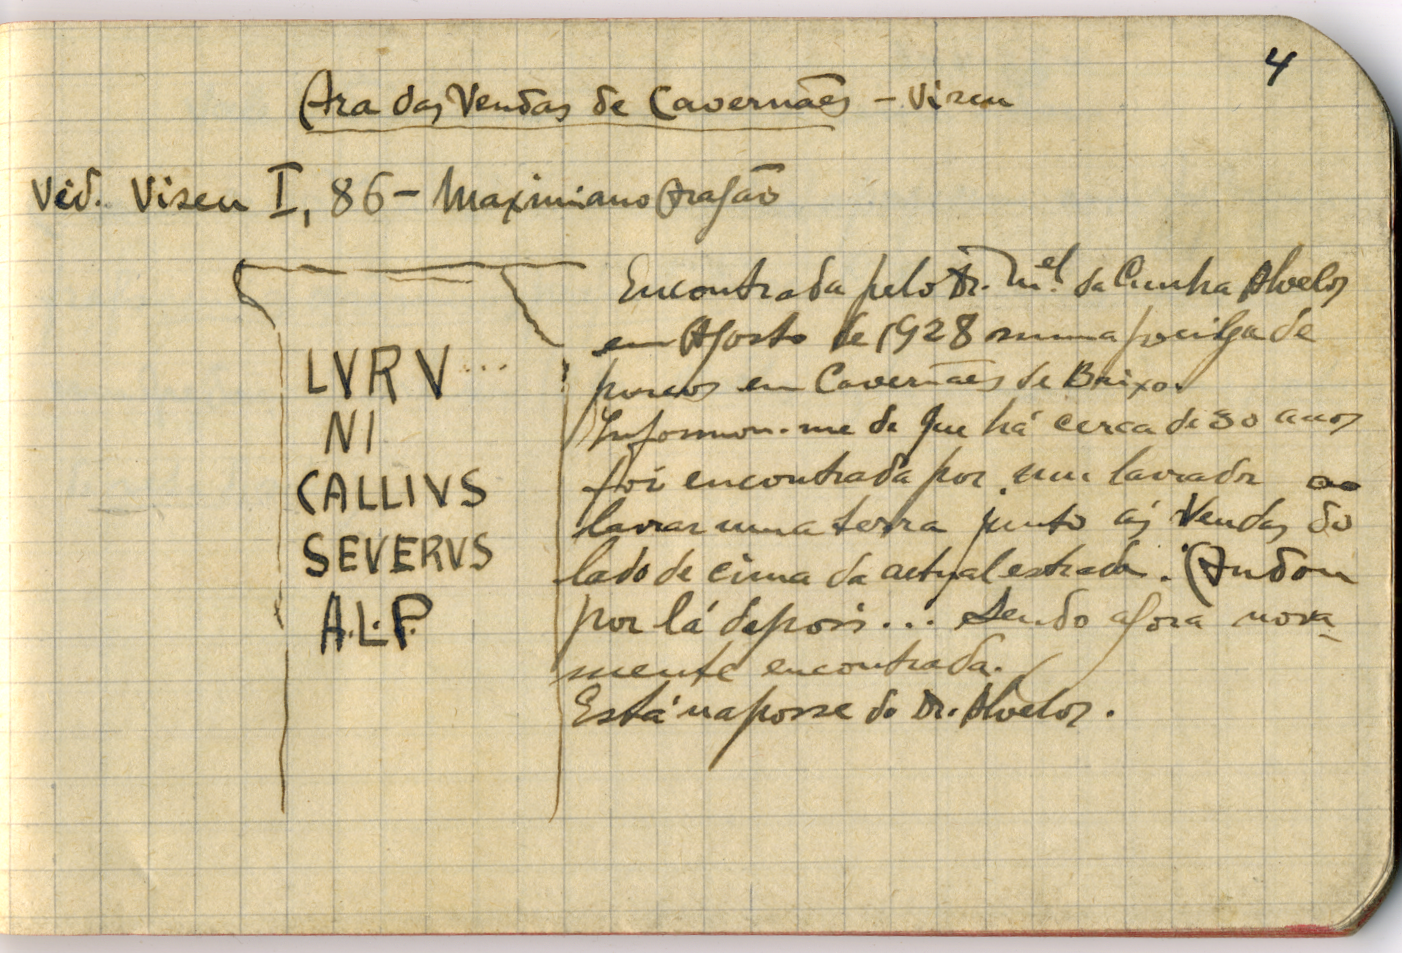 4
Ara das Vendas de Cavernães - Viseu
Vid. Viseu I, 86 - Maximiano Aragão
LVRV...
NI
CALLIVS
SEVERVS
A.L.P.
Encontrada pelo Dr. Mel. da Cunha Alvelos
em Agosto de 1928 numa pocilga de
porcos em Cavernães de Baixo.
Informou-me de que há cerca de 30 anos
foi encontrada por um lavrador ao
lavrar uma terra junto ás Vendas do
lado de cima da actual estrada. Andou
por lá depois... Sendo agora nova-
mente encontrada.
Está na posse do Dr. Alvelos.